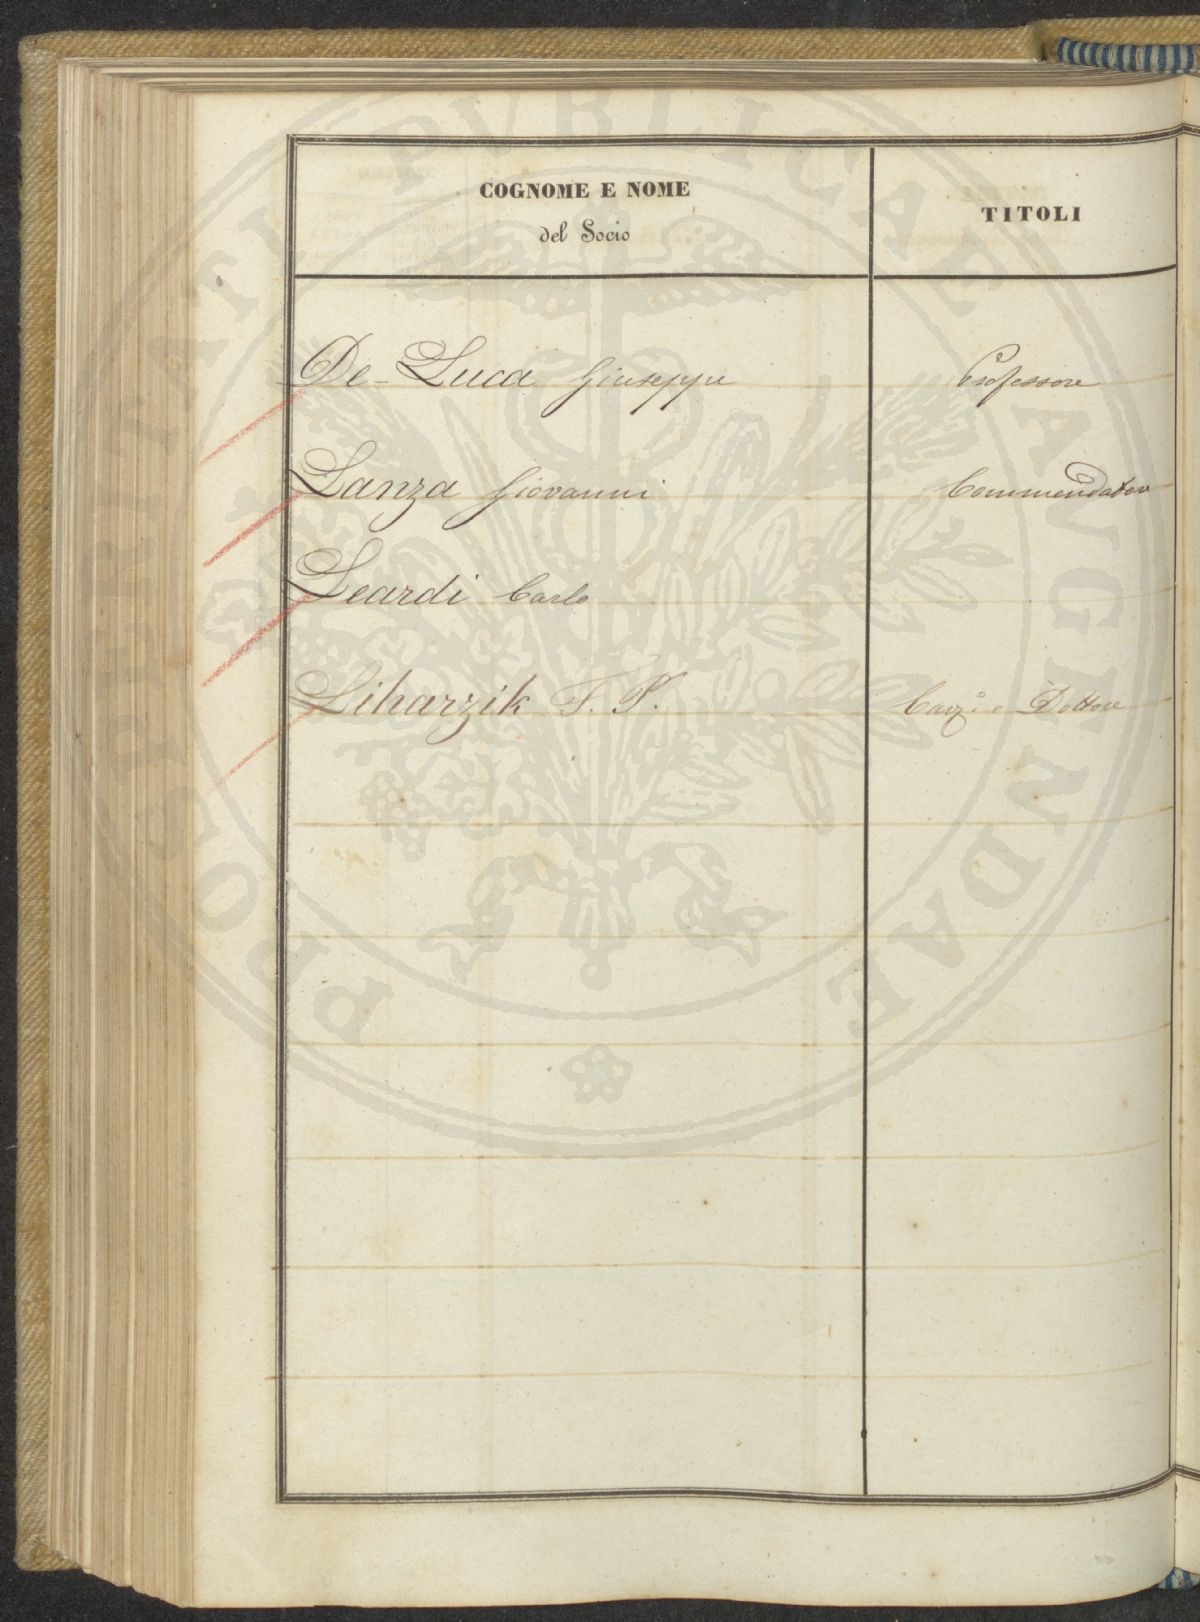 COGNOME E NOME
del Socio
TITOLI
De-Luca Giuseppe Professore
Lanza Giovanni Commendatore
Leardi Carlo
Liharzik F. P. Cav.e e Dottore
PROSPERITATI PVBLICAE AVGENDAE